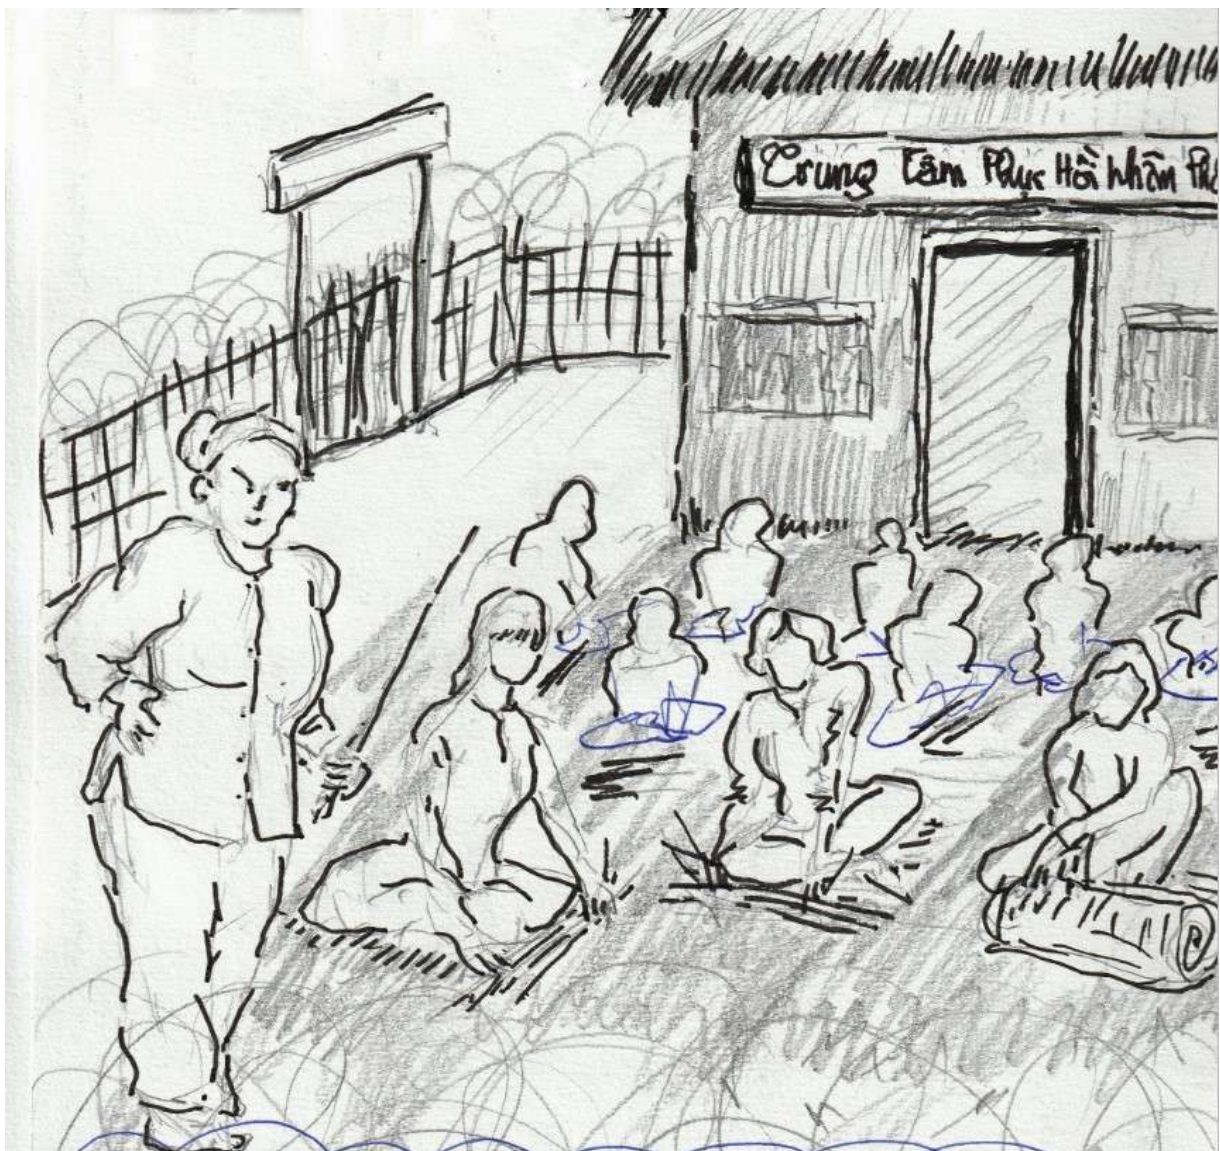 Trung Tâm Phục Hồi Nhân